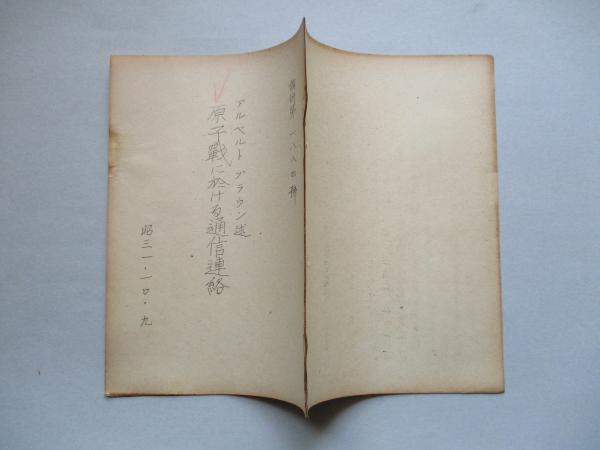 第一八八四號
アルベルト ブラウン述
原子戰に於ける通信連絡
昭三一・一〇・九